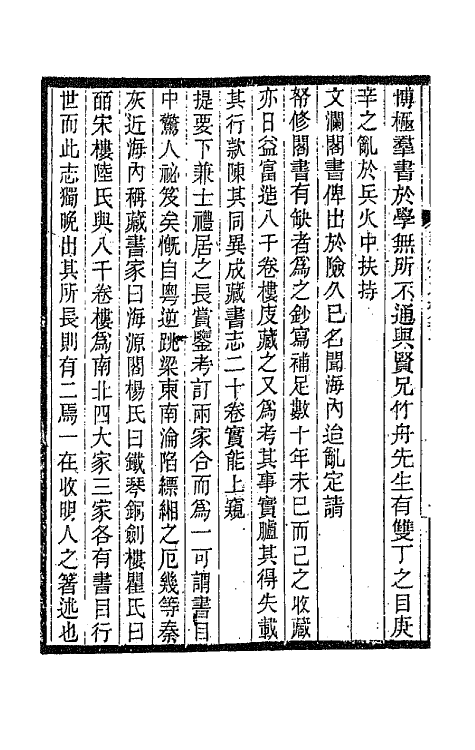 博極羣書於學無所不通與賢兄竹舟先生有雙丁之目庚
辛之亂於兵火中扶持
文瀾閣書俾出於險久已名聞海內迨亂定請
帑修閣書有缺者為之鈔寫補足數十年未已而己之收藏
亦日益富造八千卷樓庋藏之又為考其事實臚其得失載
其行款陳其同異成藏書志二十卷實能上窺
提要下兼士禮居之長賞鑒考訂兩家合而為一可謂書目
中驚人祕笈矣慨自粵逆跳梁東南淪陷縹緗之厄幾等秦
灰近海內稱藏書家曰海源閣楊氏曰鐵琴銅劍樓瞿氏曰
皕宋樓陸氏與八千卷樓為南北四大家三家各有書目行
世而此志獨晚出其所長則有二焉一在收明人之著述也